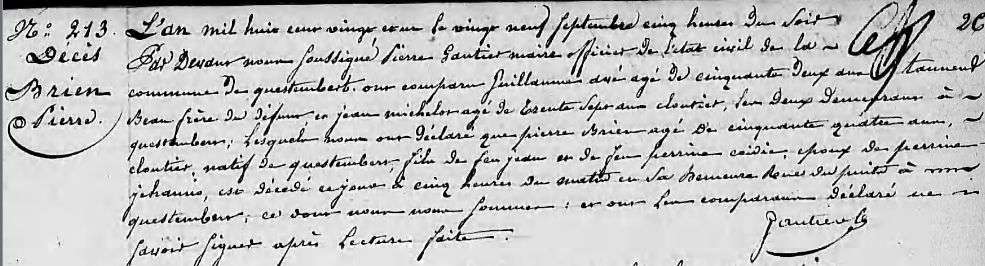 N.° 213.
Décès
Brien
Pierre.
26
L'an mil huit cent vingt et un le vingt neuf Septembre cinq heures du Soir
Par Devant nous Soussigné Pierre Gautier maire officier de l'état civil de la
commune de questembert. ont comparu Guillaume agé de cinquante deux ans tanneur
Beau frère du défunt, et jean michelot agé de trente Sept ans cloutier, les deux Demeurans à
questembert, Lesquels nous ont déclaré que pierre Brien agé De cinquante quatre ans,
cloutier, natif de questembert, fils de feu jean et de feu perrine cédie, epoux de perrine
jehanno, est décédé ce jour à cinq heures du matin en Sa Demeure Rue du puits à
questembert, ce dont nous nous Sommes : et ont les comparans déclaré ne
Savoir Signer après Lecture faite.
Gautier